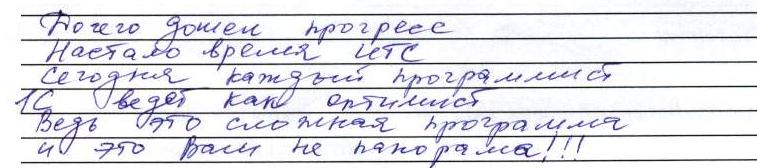 Дочего дошел прогресс
Настало время ИТС
Сегодня каждый программист
1С ведет как оптимист
Ведь это сложная программа
и это Вам не панорама!!!